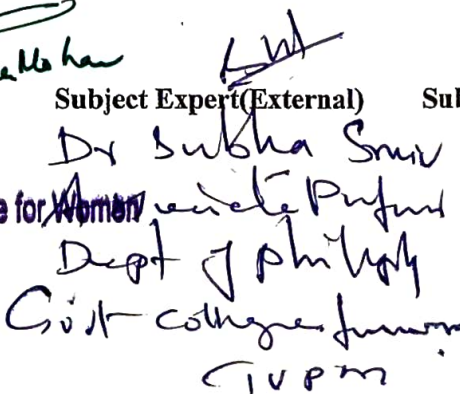 Mohan
Subject Expert(External) Sub
Dr Subha
e for Women Associate Professor
Dept of Philosophy
Govt College for women
TVPM